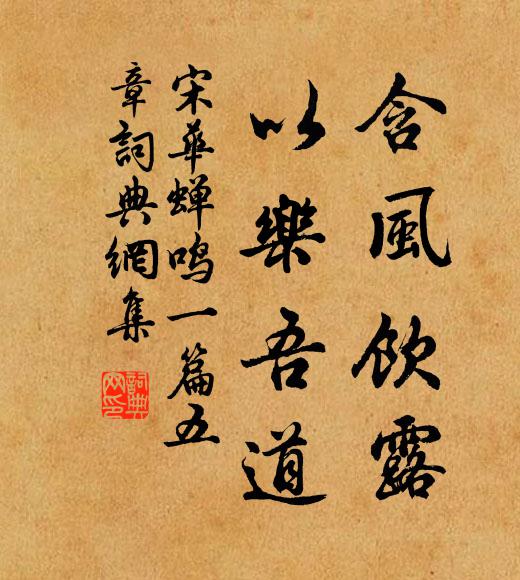 含風飲露
以樂吾道
宋華蝉鸣一篇五
章詞典網集
詞典
网印